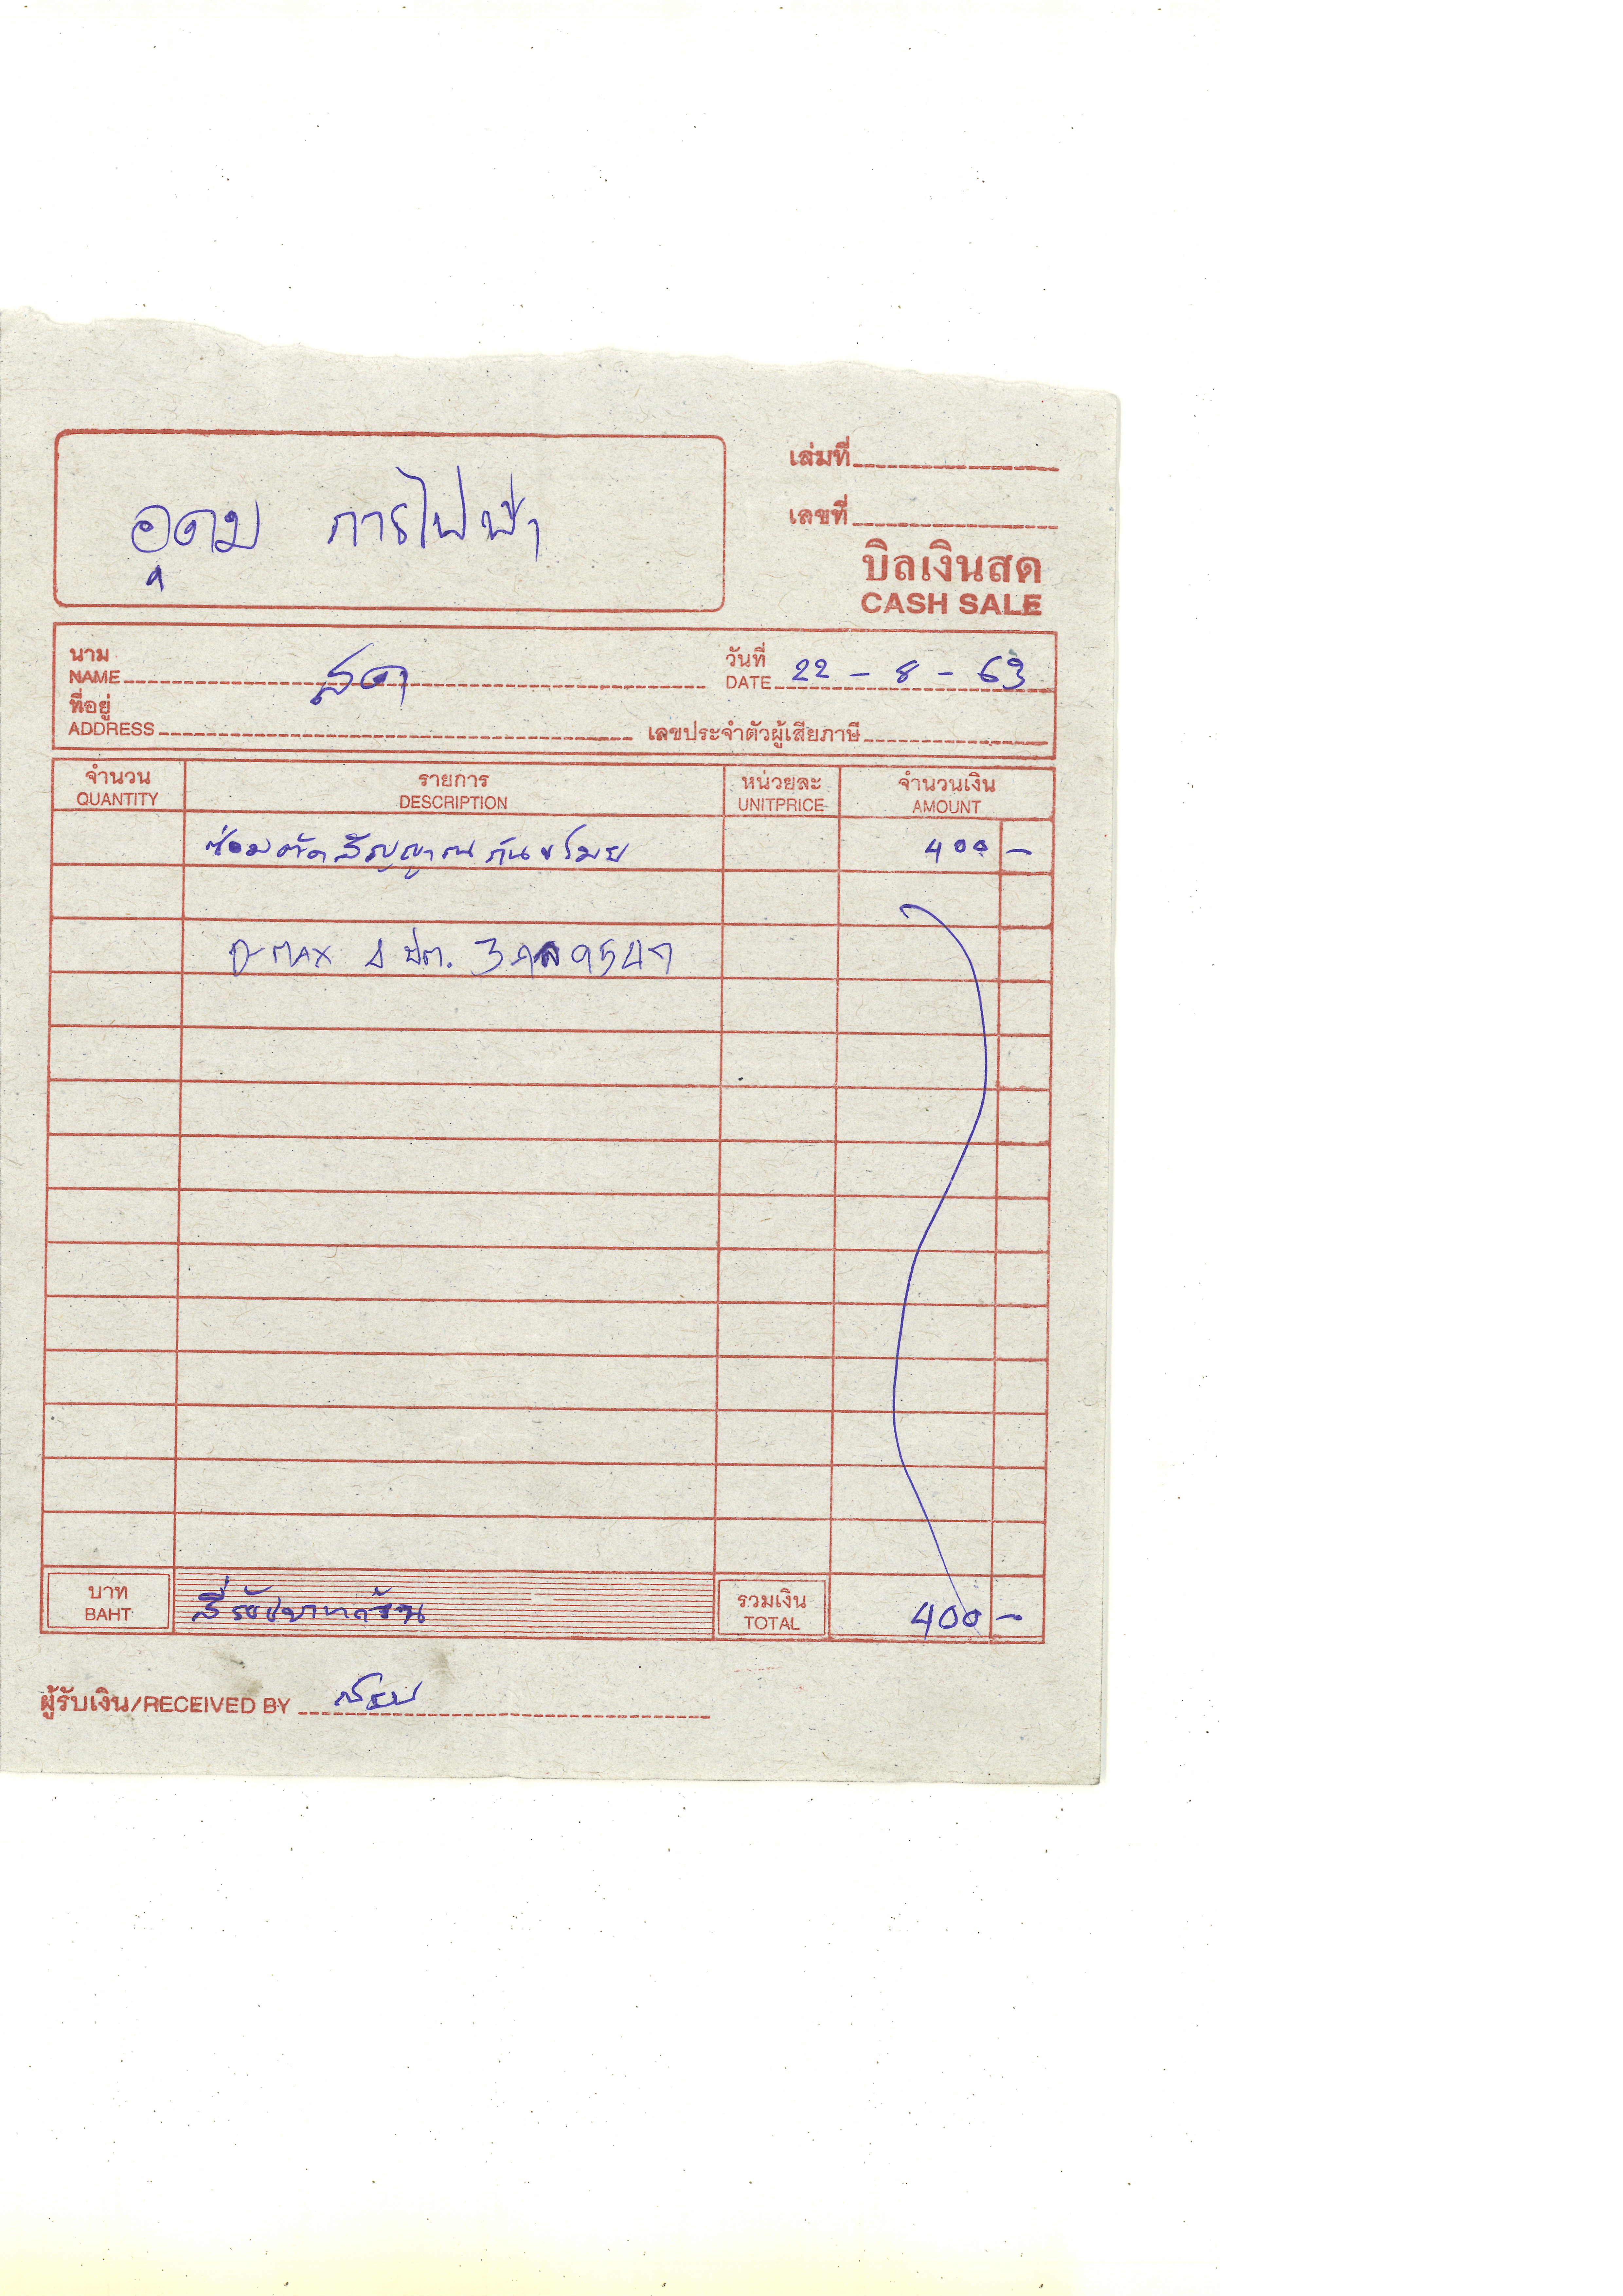 เล่มที่
อุดม การไฟฟ้า
เลขที่
บิลเงินสด
CASH SALE
นาม
NAME สด
วันที่
DATE 22 - 8 - 63
ที่อยู่
ADDRESS เลขประจำตัวผู้เสียภาษี
จำนวน รายการ หน่วยละ จำนวนเงิน
QUANTITY DESCRIPTION UNITPRICE AMOUNT
ซ่อมตัดสัญญาณกันขโมย 400 -
D-MAX 4 ปต. 9547
บาท
BAHT สี่ร้อยบาทถ้วน
รวมเงิน
TOTAL 400 -
ผู้รับเงิน/RECEIVED BY